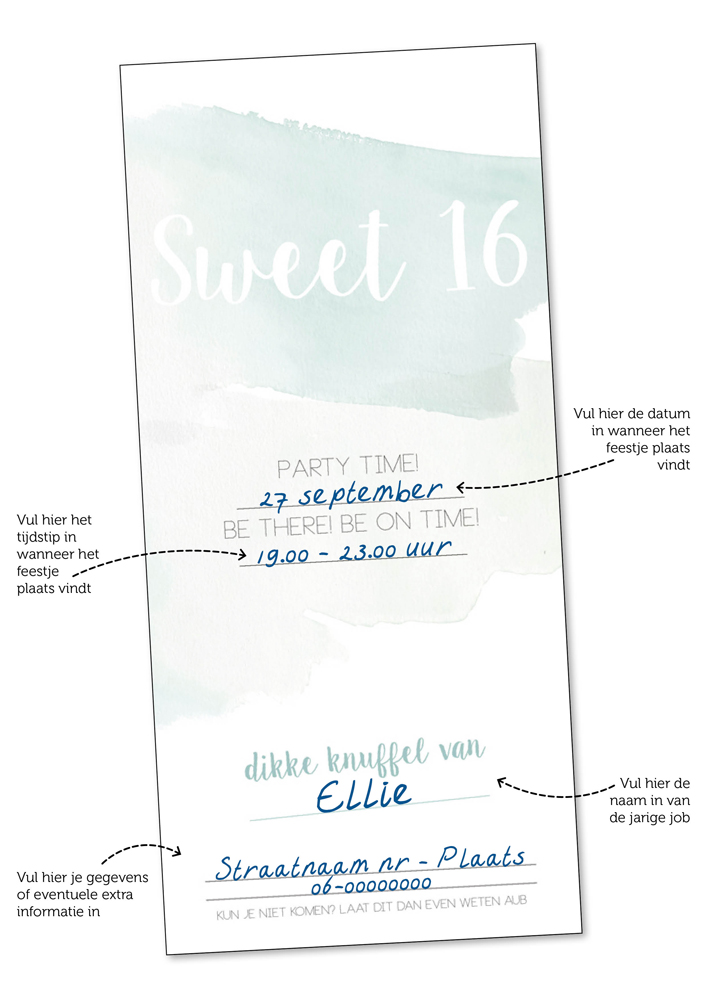 Sweet 16
Vul hier de datum
in wanneer het
feestje plaats
vindt
PARTY TIME!
27 september
BE THERE! BE ON TIME!
19.00 - 23.00 uur
Vul hier het
tijdstip in
wanneer het
feestje
plaats vindt
dikke knuffel van
Ellie
Vul hier de
naam in van
de jarige job
Straatnaam nr - Plaats
06-00000000
KUN JE NIET KOMEN? LAAT DIT DAN EVEN WETEN AUB
Vul hier je gegevens
of eventuele extra
informatie in